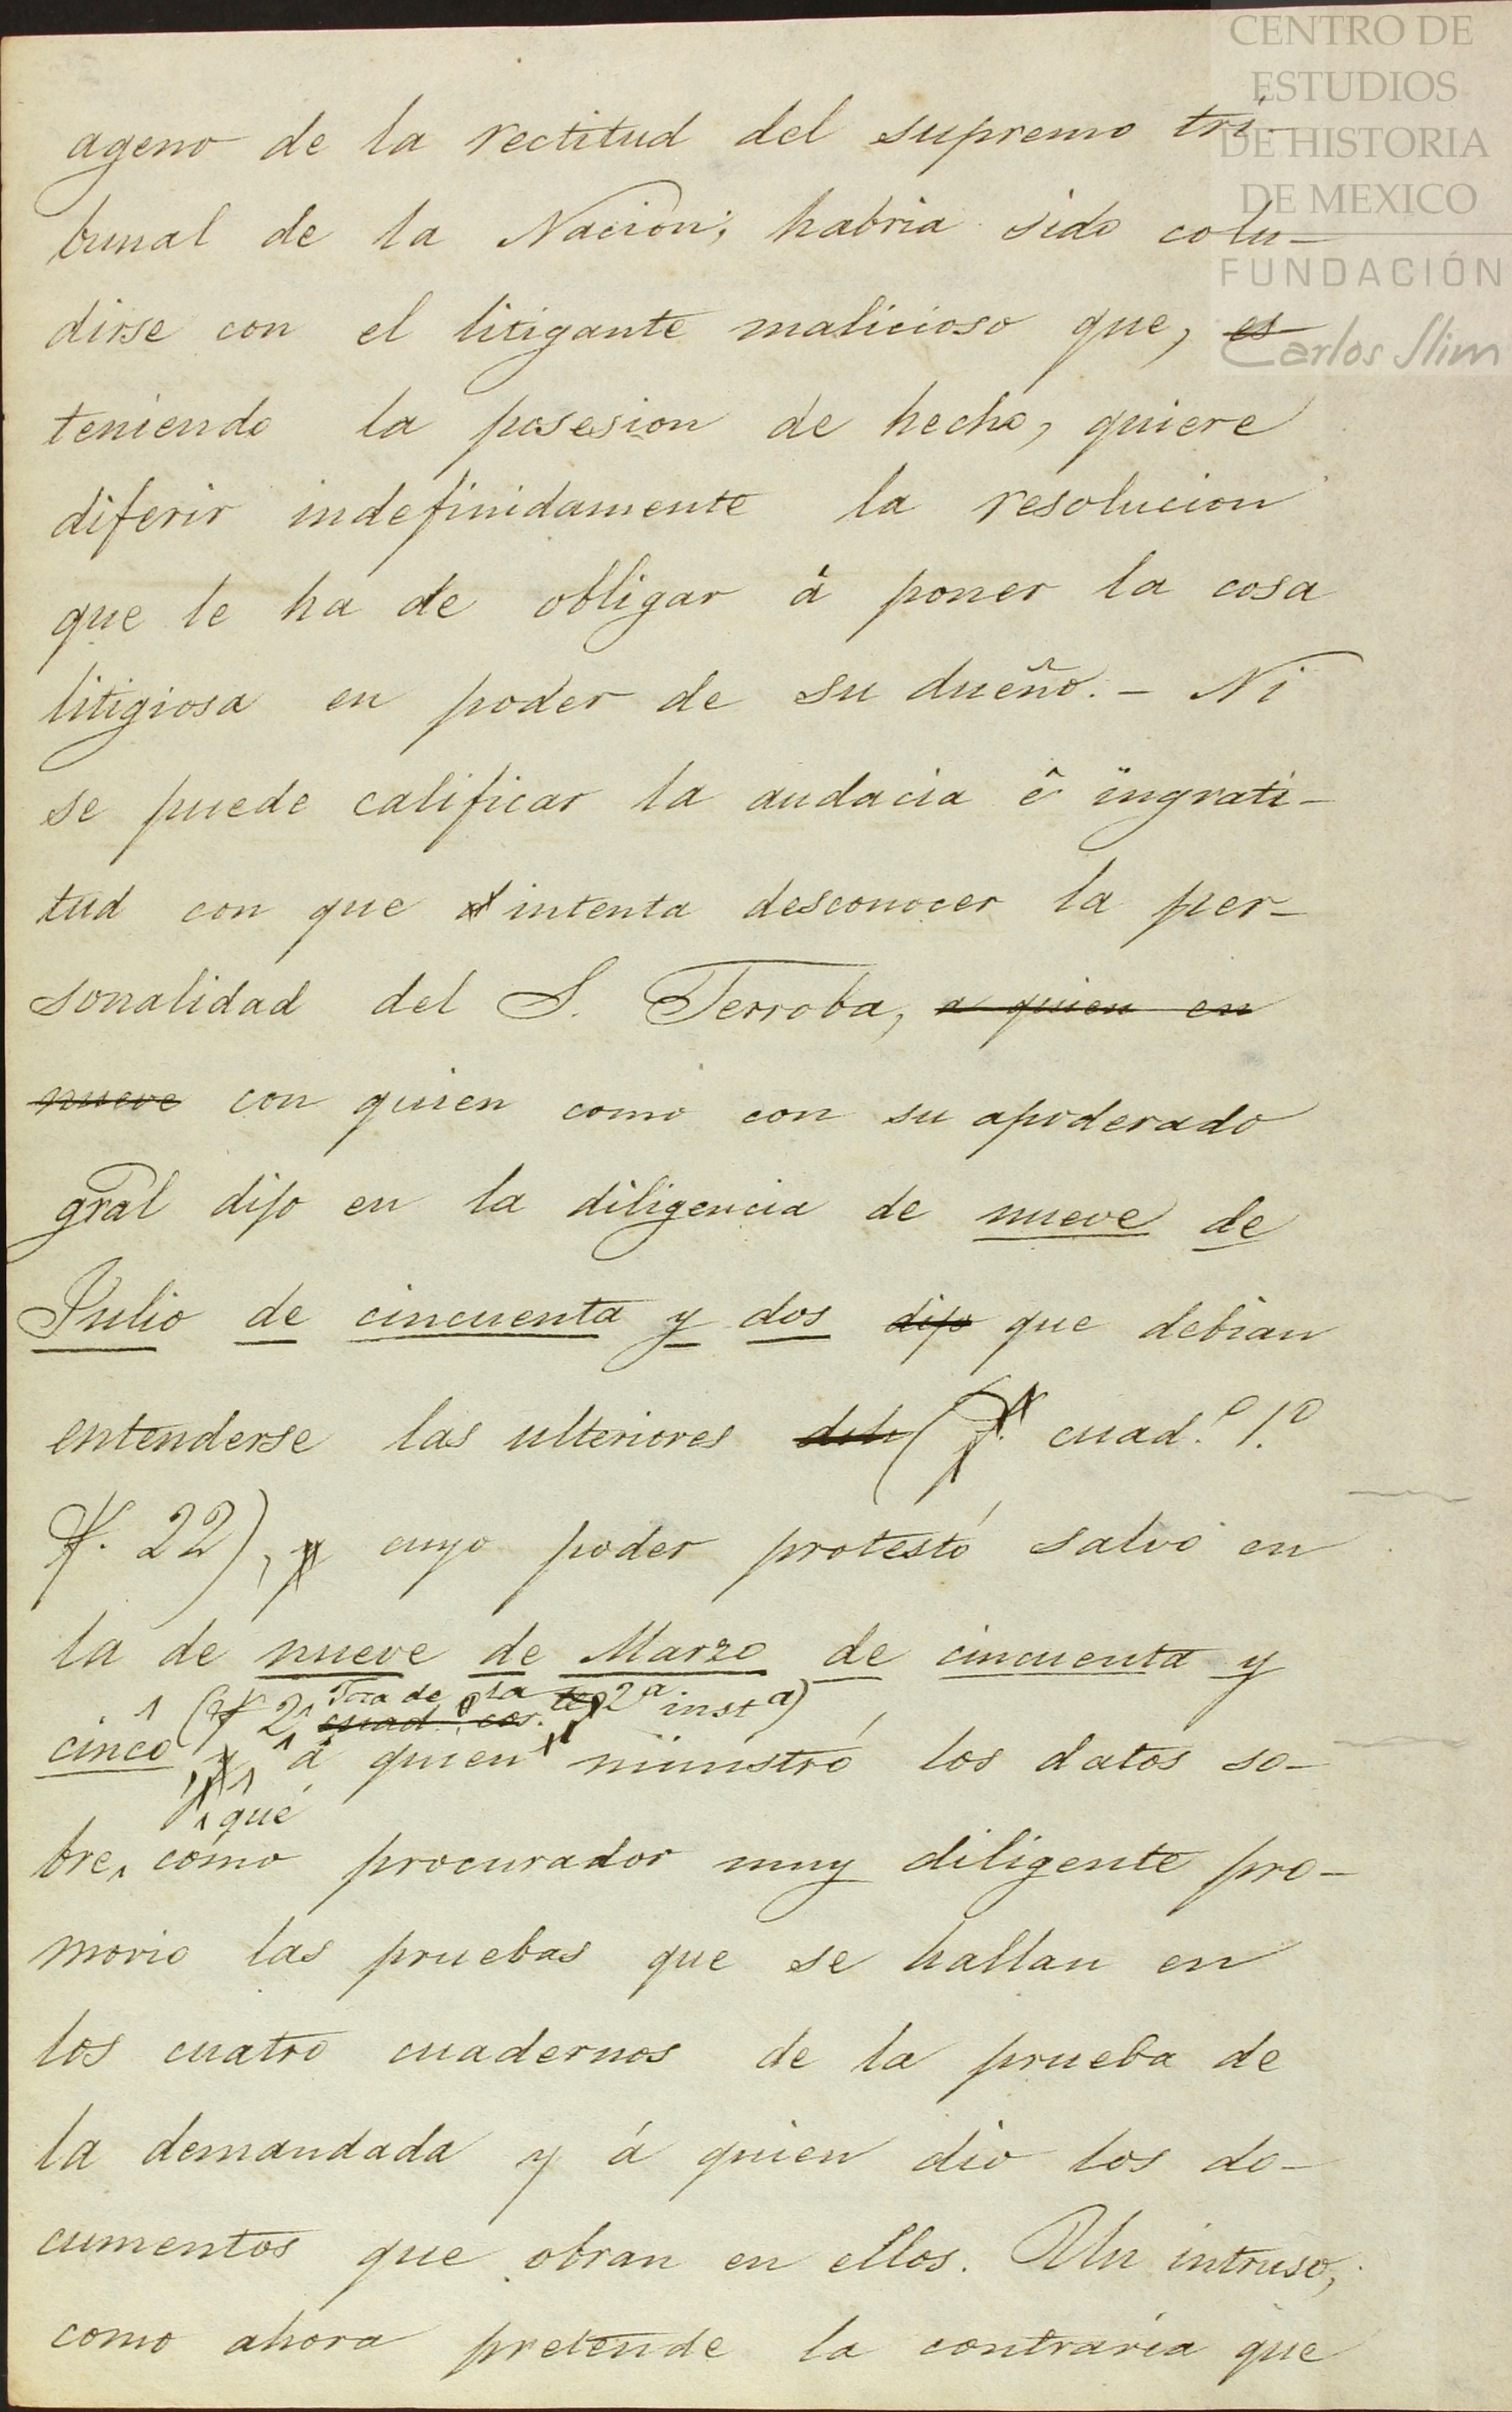 CENTRO DE
ESTUDIOS
DE HISTORIA
DE MEXICO
FUNDACIÓN
Carlos Slim
ageno de la rectitud del supremo tri-
bunal de la Nacion; habria sido colu-
dirse con el litigante malicioso que, es
teniendo la posesion de hecho, quiere
diferir indefinidamente la resolucion
que le ha de obligar á poner la cosa
litigiosa en poder de su dueño. - Ni
se puede calificar la audacia é ingrati-
tud con que intenta desconocer la per-
sonalidad del S. Terroba, a quien en
nueve con quien como con su apoderado
gral dijo en la diligencia de nueve de
Julio de cincuenta y dos dijo que debian
entenderse las ulteriores ( cuad.º 1.º
f. 22), y cuyo poder protestó salvo en
la de nueve de Marzo de cincuenta y
(f 2 Toca de la 2ª instª)
cuad.º
cinco y á quien ministró los datos so-
qué
bre, cómo procurador muy diligente pro-
movio las pruebas que se hallan en
los cuatro cuadernos de la prueba de
la demandada y á quien dio los do-
cumentos que obran en ellos. Un intruso,
como ahora pretende la contraria que